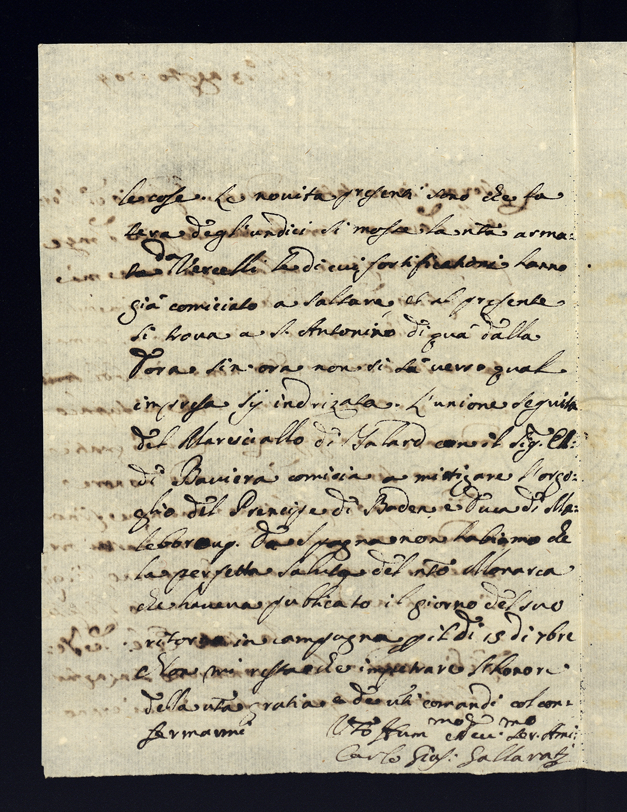 le cose. Le novita presenti sono che la
sera degl'undici si mosse la nrã arma:
ta da Vercelli le di cui fortificationi hanno
già comiciato a saltare, et al presente
si trova a S. Antonino di quà dalla
Dora, sin ora non si sà verso qual
impresa sij indrizata. L'unione seguita
del Maresciallo di Talard con il Sig.r El:
di Baviera comicia a mitigare l'orgo:
glio del Prencipe di Baden, e Duca di Ma:
leboroug. Da Spagna non habiamo che
la perfetta salute del nrõ Monarca
che haveva publicato il giorno del suo
ritorno in campagna p il di 15 di 7bre
e non mi resta che impetrare l'honore
della vrã gratia e de vrĩ comandi col con:
fermarmi
Vrõ Hum.mo e Dev.mo Ser. Ami:
Carlo Gios: Gallarati